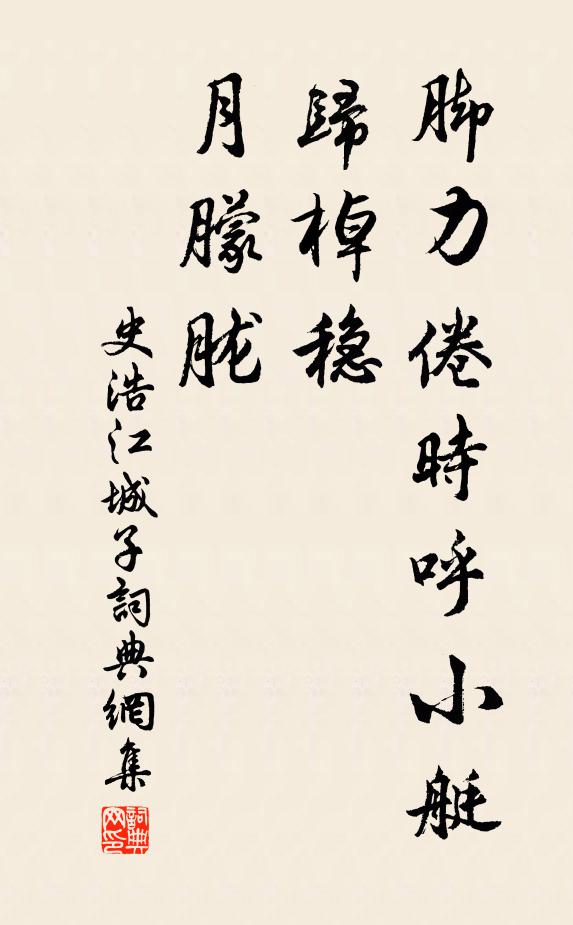 脚力倦時呼小艇
歸棹穏
月朦胧
史浩江城子詞典網集
詞典
网印